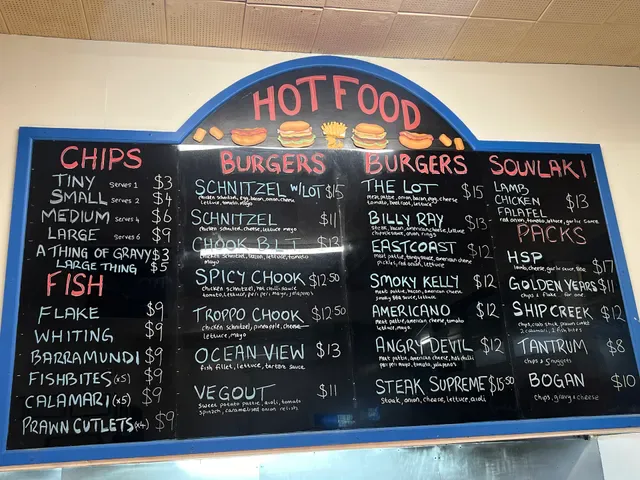 HOT FOOD
CHIPS
TINY SERVES 1 $3
SMALL SERVES 2 $4
MEDIUM SERVES 4 $6
LARGE SERVES 6 $9
A THING OF GRAVY $3
LARGE THING $5
FISH
FLAKE $9
WHITING $9
BARRAMUNDI $9
FISHBITES (x5) $9
CALAMARI (x5) $9
PRAWN CUTLETS (x4) $9
BURGERS
SCHNITZEL W/LOT $15
chicken schnitzel, egg, bacon, onion, cheese
lettuce, tomato, mayo
SCHNITZEL $11
chicken schnitzel, cheese, lettuce mayo
CHOOK B.L.T $13
chicken schnitzel, bacon, lettuce, tomato
mayo
SPICY CHOOK $12.50
chicken schnitzel, hot chilli sauce
tomato, lettuce, peri peri mayo, jalapenos
TROPPO CHOOK $12.50
chicken schnitzel, pineapple, cheese
lettuce, mayo
OCEAN VIEW $13
fish fillet, lettuce, tartare sauce
VEGOUT $11
sweet potato pattie, aioli, tomato
spinach, caramelised onion relish
BURGERS
THE LOT $15
meat pattie, onion, bacon, egg, cheese
tomato, beetroot, lettuce
BILLY RAY $13
steak, bacon, american cheese, lettuce
chipotle sauce, onion rings
EASTCOAST $12
meat pattie, tangy sauce, american cheese
pickles, red onion, lettuce
SMOKY KELLY $12
meat pattie, bacon, american cheese
smoky BBQ sauce, lettuce
AMERICANO $12
meat pattie, american cheese, tomato
lettuce, mayo
ANGRY DEVIL $12
meat pattie, american cheese, hot chilli
peri peri mayo, tomato, jalapenos
STEAK SUPREME $15.50
steak, onion, cheese, lettuce, aioli
SOUVLAKI
LAMB
CHICKEN $13
FALAFEL
red onion, tomato, lettuce, garlic sauce
PACKS
HSP $17
lamb, cheese, garlic sauce, BBQ
GOLDEN YEARS $11
chips & flake for one
SHIP CREEK $12
chips, crab stick, prawn cutlet
2 calamari, 2 fish bites
TANTRUM $8
chips & 5 nuggets
BOGAN $10
chips, gravy & cheese